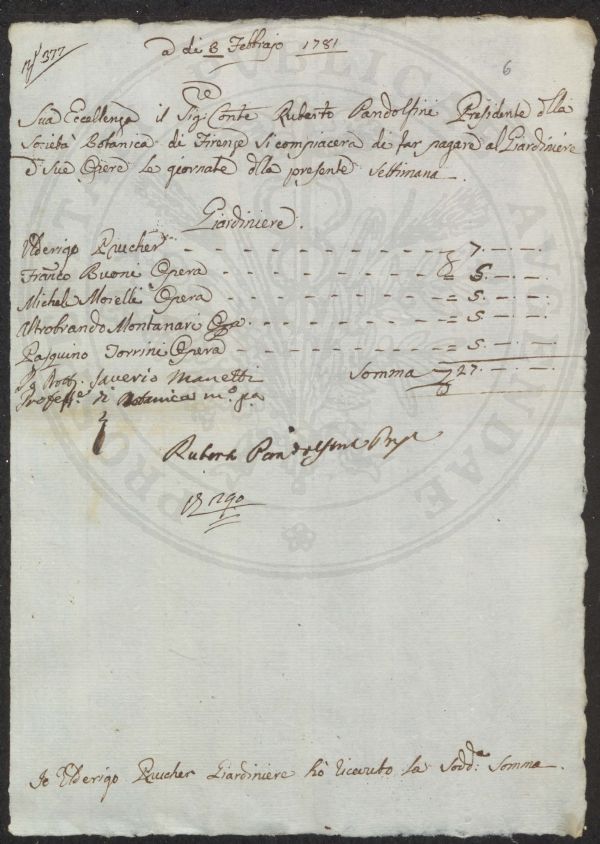 N° 377
a di 3 Febbrajo 1781
6
Sua Eccellenza il Sig.re Conte Ruberto Pandolfini Presidente dlla
Società Botanica di Firenze si compiacerà di far pagare al Giardiniere
e sue Opere le giornate dlla presente Settimana
Giardiniere.
Ulderigo Prucher - - - 7. — . —
Franco Buoni Opera - - - = 5. — . —
Michele Morelli Opera - - - = 5. — . —
Altobrando Montanari Opa - - - = 5. — . —
Pasquino Torrini Opera - - - = 5. — . —
Somma 27. — . —
Saverio Manetti
Profess.e di Botanica m.o p.a
Ruberto Pandolfini Pres.e
290
Io Ulderigo Prucher Giardiniere hò ricevuto la Sodd.a Somma